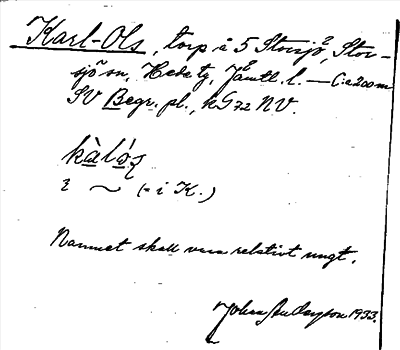 Karl-Ols, torp å 5 Storsjö, Stor-
sjö sn, Hede tg, Jämtl. l. — C:a 200 m
SV Begr. pl., kG 72 NV.
kàlós
i ~ (= i K.)
Namnet skall vara relativt ungt.
Johan 1933.